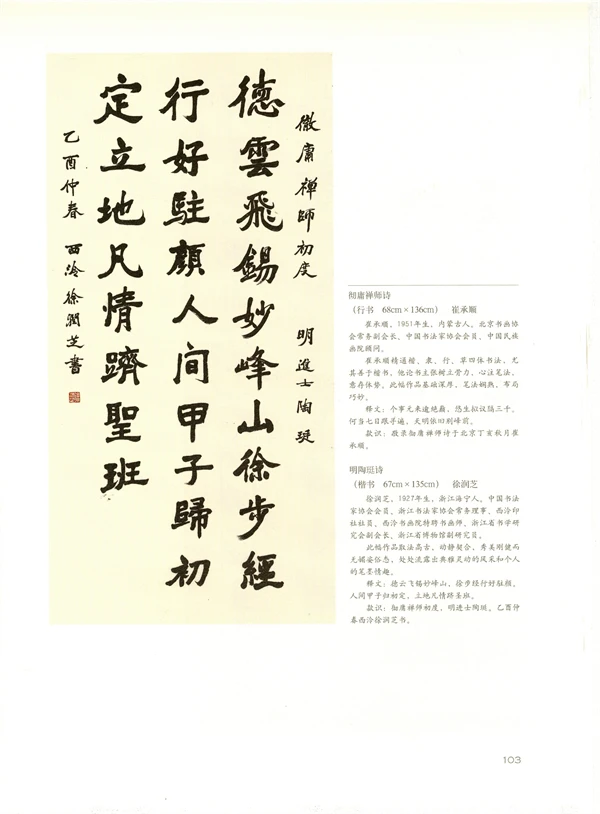 徹庸禅師初度 明進士陶珽
德雲飛錫妙峰山徐步經
行好駐顔人间甲子歸初
定立地凡情躋聖班
乙酉仲春 西泠徐潤芝書
彻庸禅师诗
(行书 68cm×136cm) 崔承顺
崔承顺，1951年生，内蒙古人，北京书画协
会常务副会长、中国书法家协会会员、中国民族
画院顾问。
崔承顺精通楷、隶、行、草四体书法，尤
其善于楷书，他论书主张树立骨力，心注笔法，
意存体势。此幅作品基础深厚，笔法娴熟，布局
巧妙。
释文：个事元来逾绝巅，您生拟议隔三千。
何当七日跟寻遍，天明依旧别峰前。
款识：敬录彻庸禅师诗于北京丁亥秋月崔
承顺。
明陶珽诗
(楷书 67cm×135cm) 徐润芝
徐润芝，1927年生，浙江海宁人，中国书法
家协会会员、浙江书法家协会常务理事、西泠印
社社员、西泠书画院特聘书画师、浙江省书学研
究会副会长、浙江省博物馆副研究员。
此幅作品取法高古，动静契合，秀美刚健而
无媚妄俗态，处处流露出典雅灵动的风采和个人
的笔墨情趣。
释文：德云飞锡妙峰山，徐步经行好驻颜。
人间甲子归初定，立地凡情跻圣班。
款识：彻庸禅师初度，明进士陶珽。乙酉仲
春西泠徐润芝书。
103